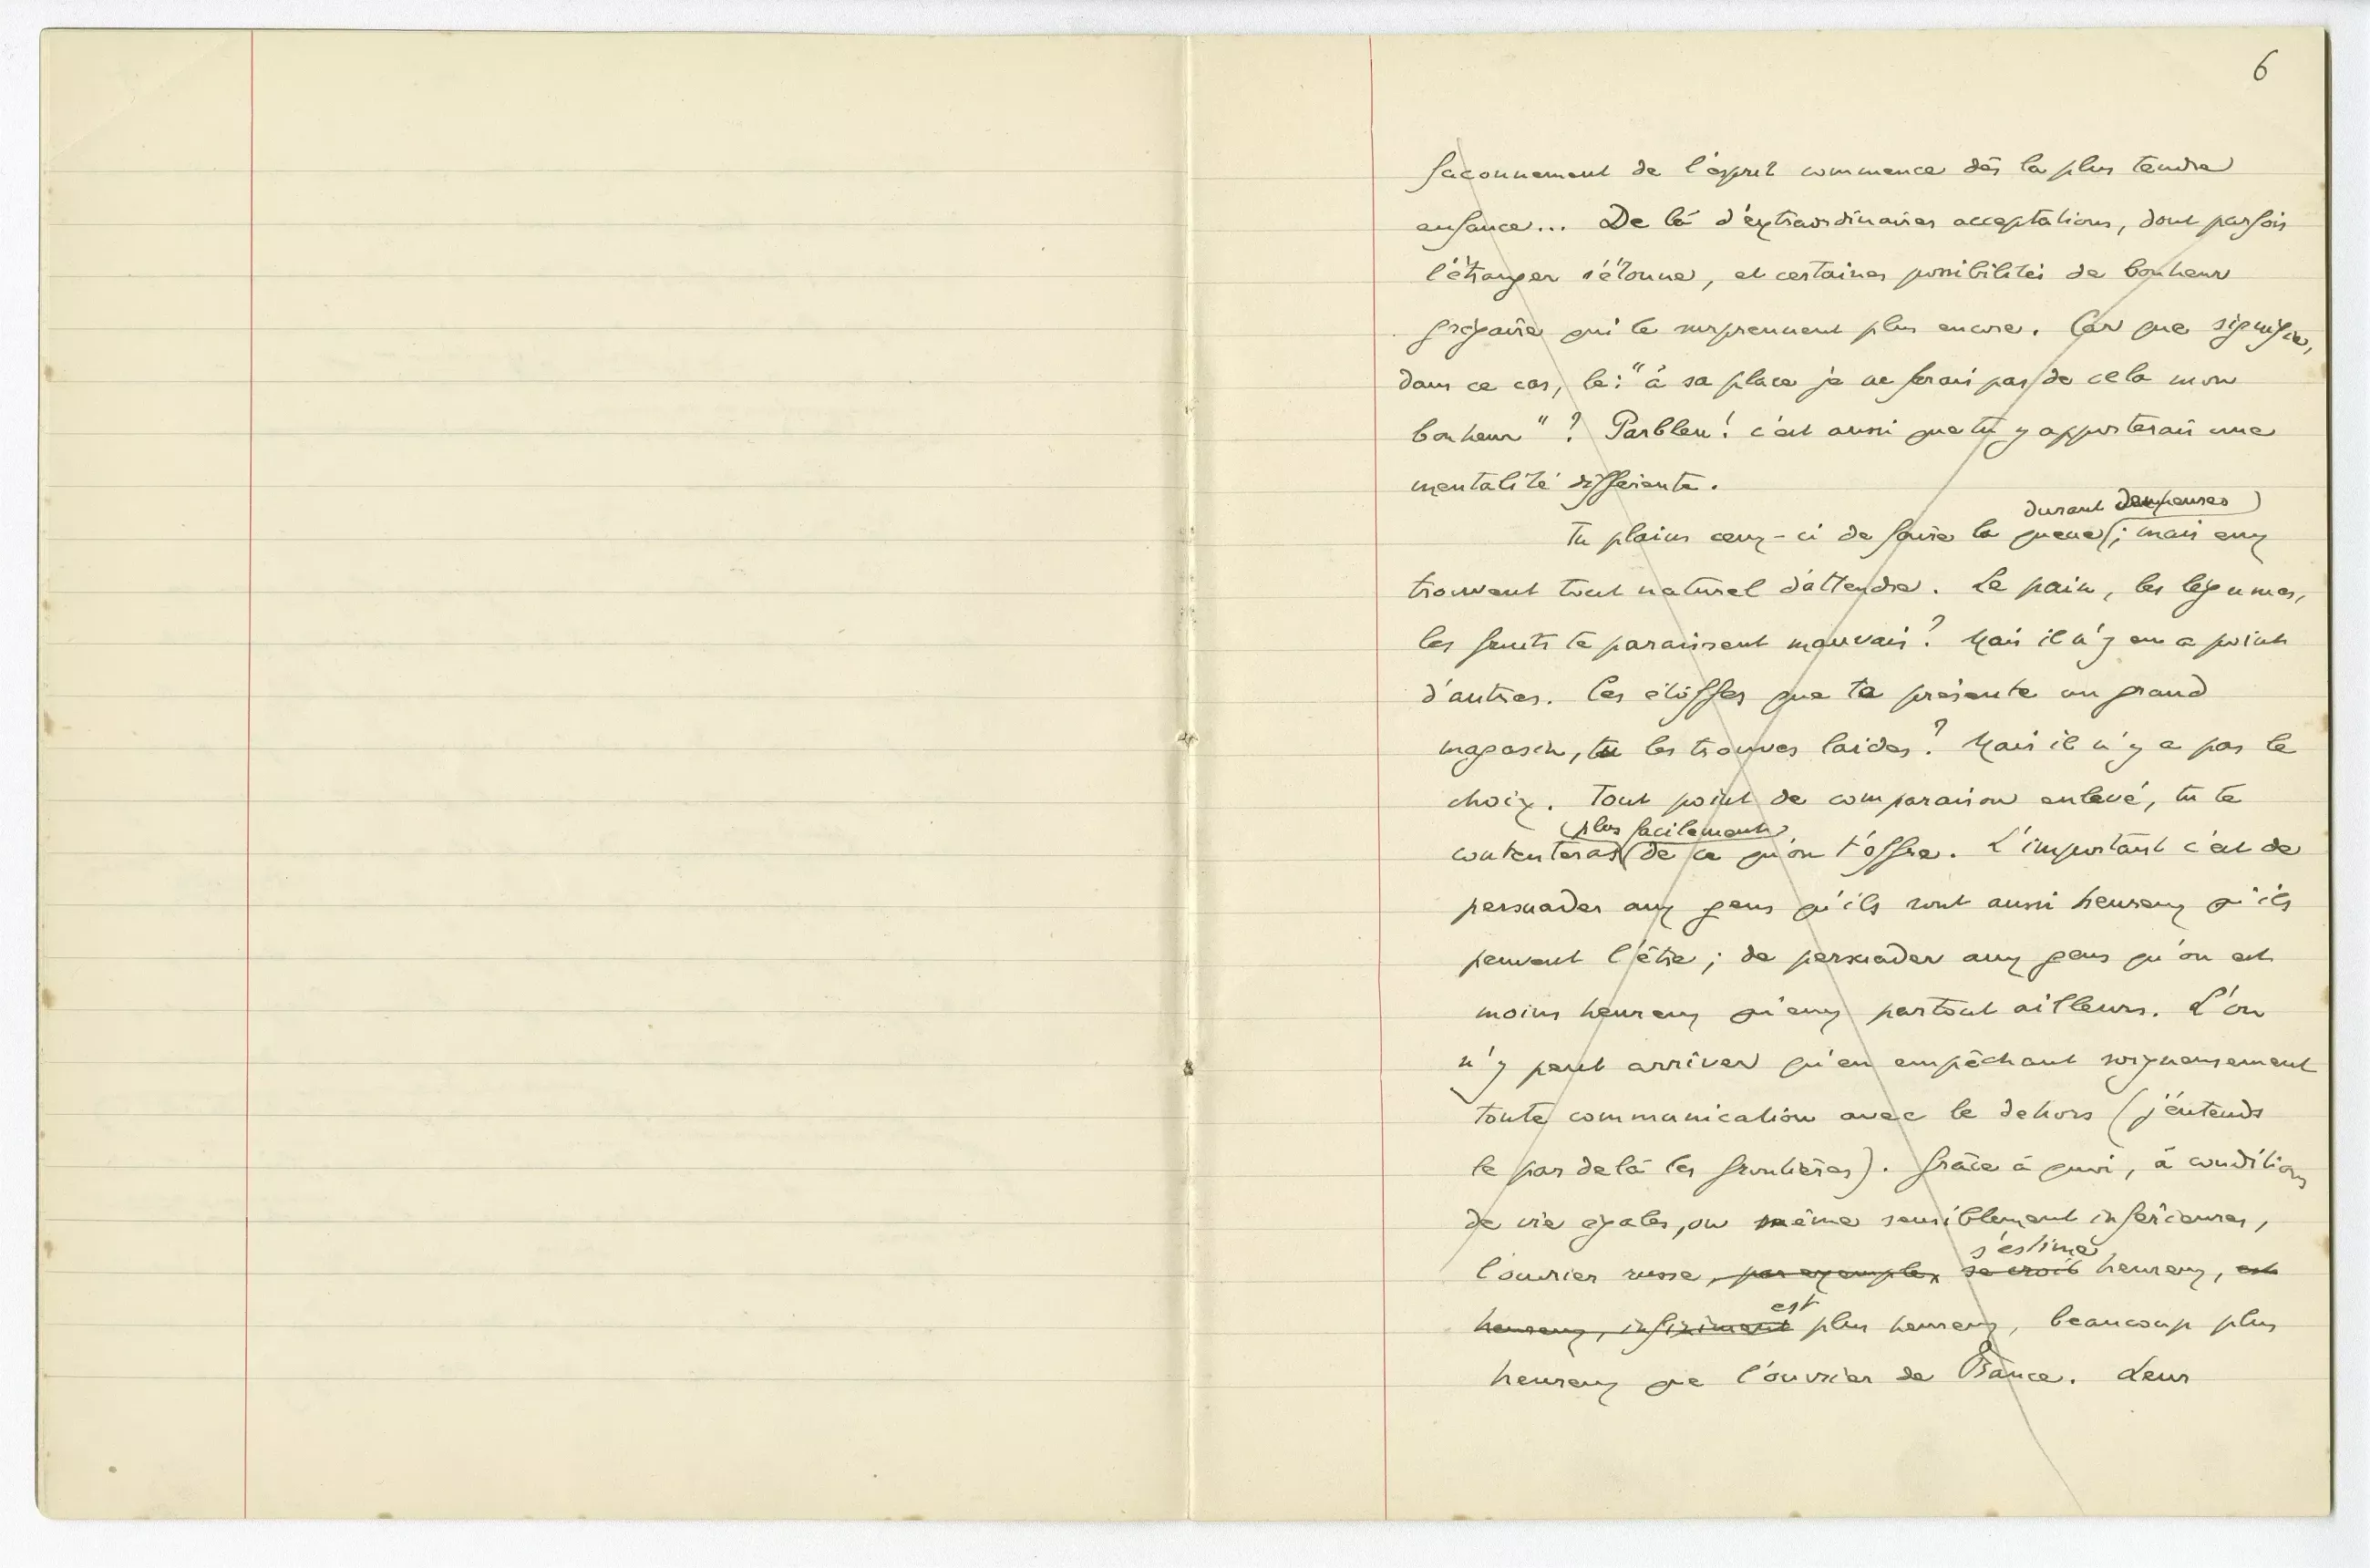 6
façonnement de l'esprit commence dès la plus tendre
enfance... De là d'extraordinaires acceptations, dont parfois
l'étranger s'étonne, et certaines possibilités de bonheur
grégaire qui le surprennent plus encore. Car que signifie,
dans ce cas, le : "à sa place je ne ferais pas de cela mon
bonheur" ? Parbleu ! c'est aussi que tu y apporterais une
mentalité différente.
durant des heures
Tu plains ceux-ci de faire la queue ; mais eux
trouvent tout naturel d'attendre. Le pain, les légumes,
les fruits te paraissent mauvais ? Mais il n'y en a point
d'autres. Ces étoffes que te présente un grand
magasin, tu les trouves laides ? Mais il n'y a pas le
choix. Tout point de comparaison enlevé, tu te
plus facilement
contenteras de ce qu'on t'offre. L'important c'est de
persuader aux gens qu'ils sont aussi heureux qu'ils
peuvent l'être ; de persuader aux gens qu'on est
moins heureux qu'eux partout ailleurs. L'on
n'y peut arriver qu'en empêchant soigneusement
toute communication avec le dehors (j'entends
le par delà les frontières). Grâce à quoi, à conditions
de vie égales, ou même sensiblement inférieures,
s'estime
l'ouvrier russe, par exemple, se croit heureux, est
est
heureux, infiniment plus heureux, beaucoup plus
heureux que l'ouvrier de France. Leur